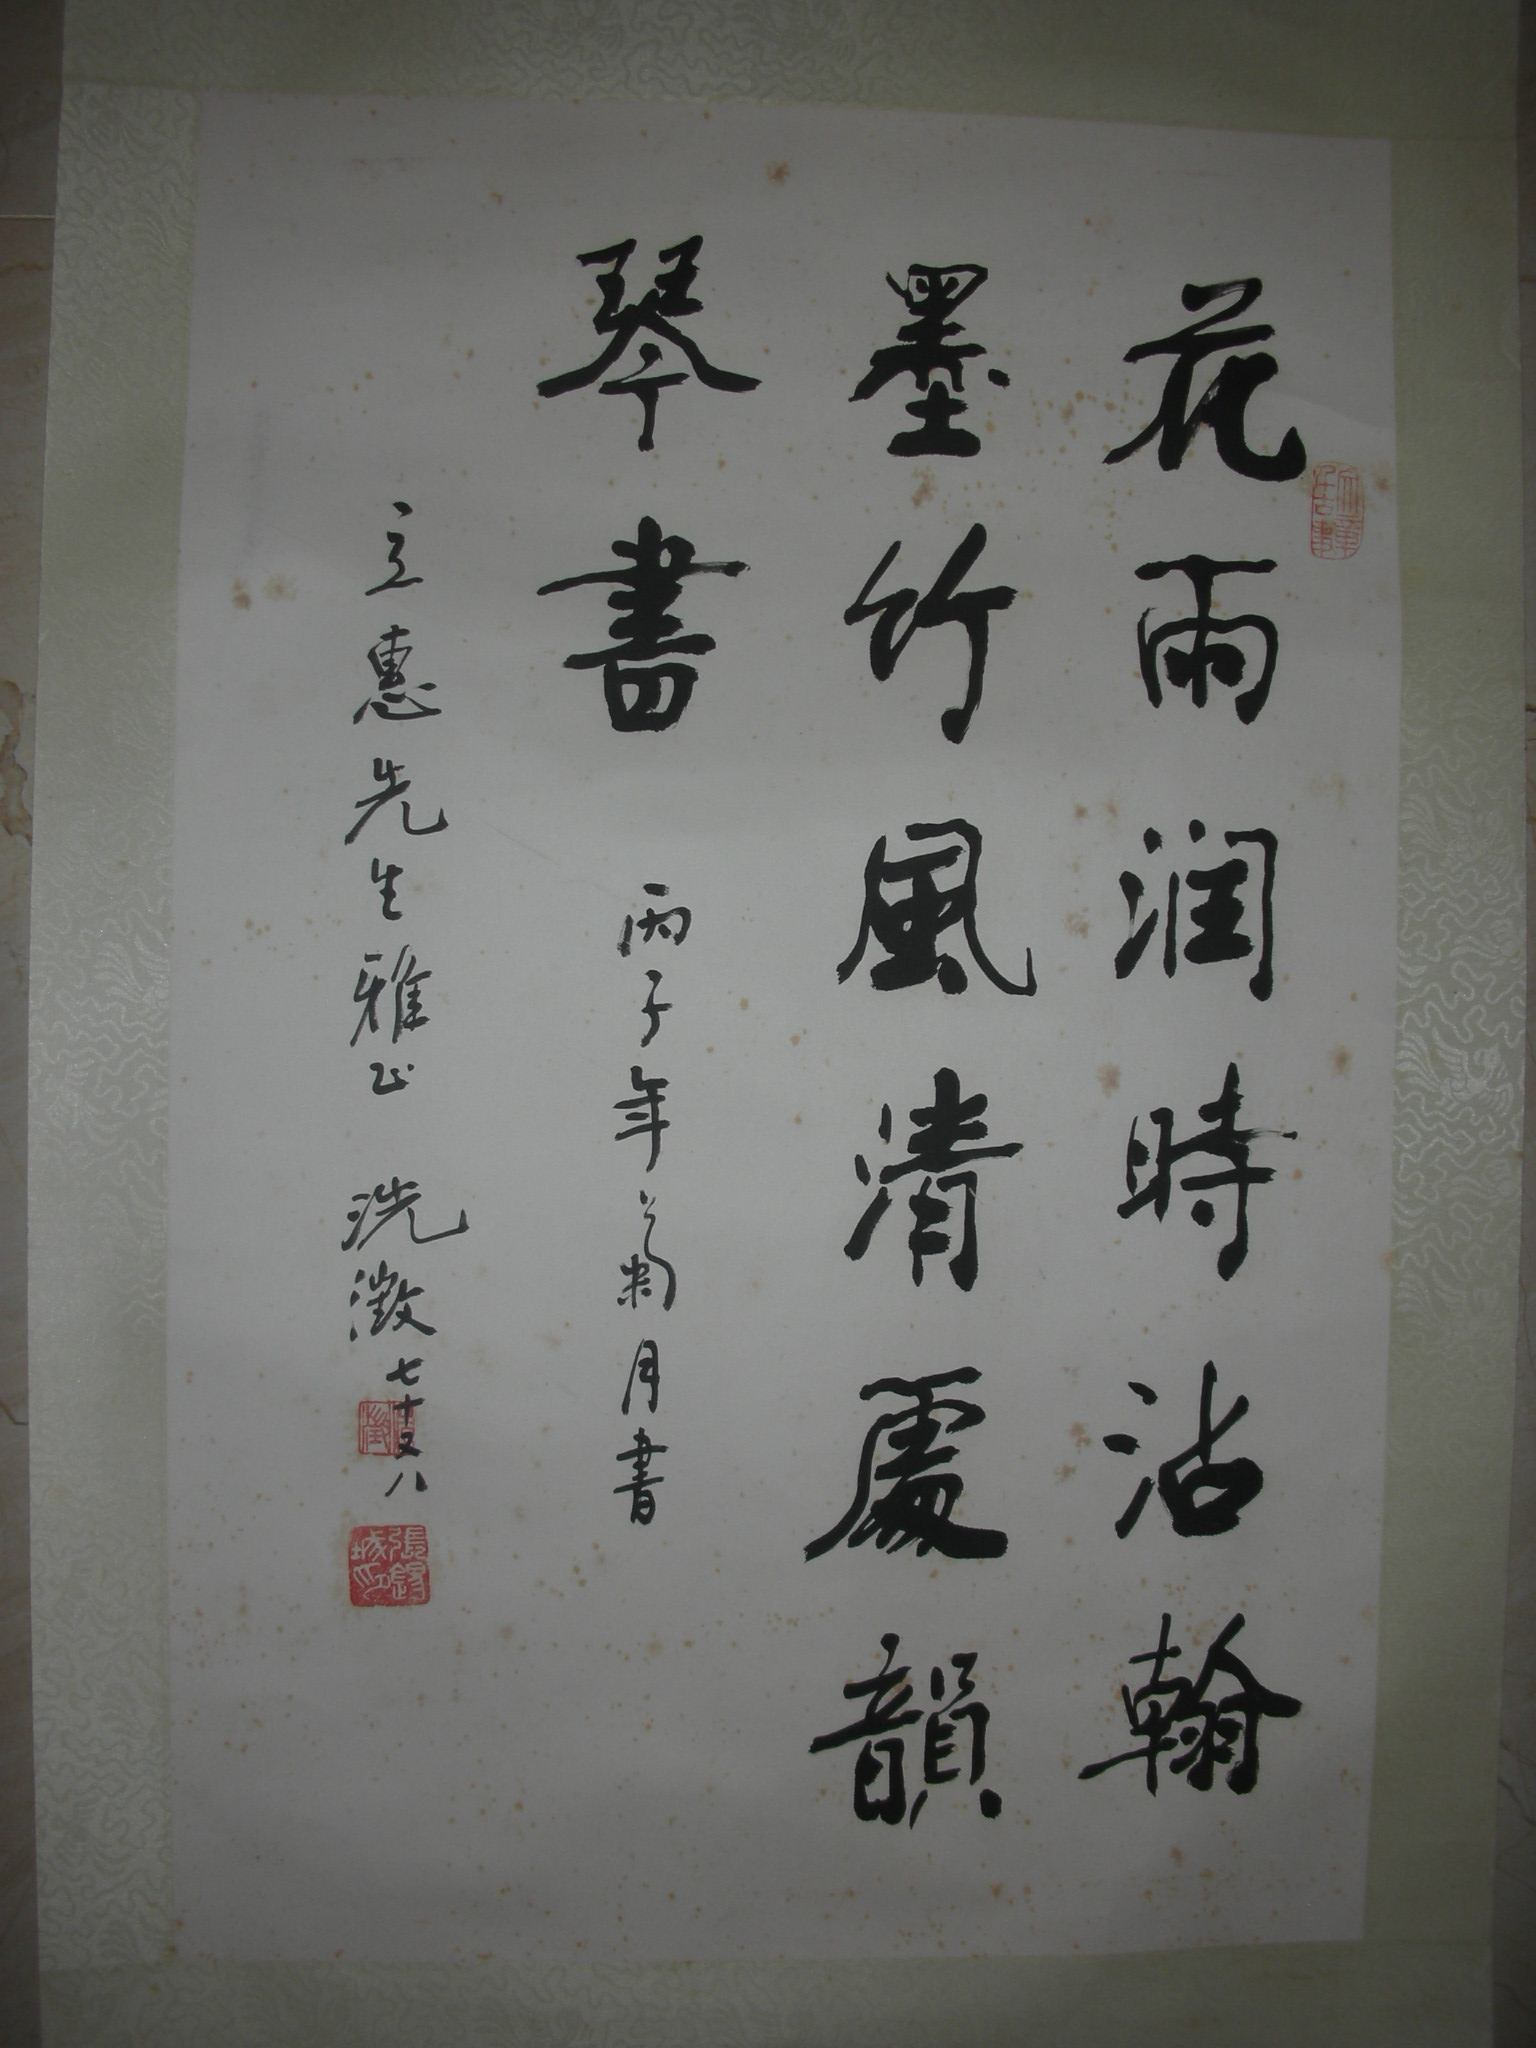 花雨润時沾翰
墨竹風清處韻
琴書
丙子年菊月書
立惠先生雅正 洗澂七十又八